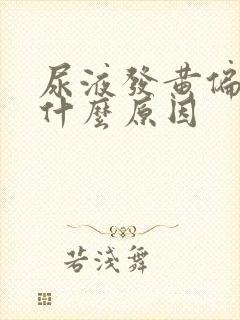 尿液發黃偏
什麼原因
若淺舞